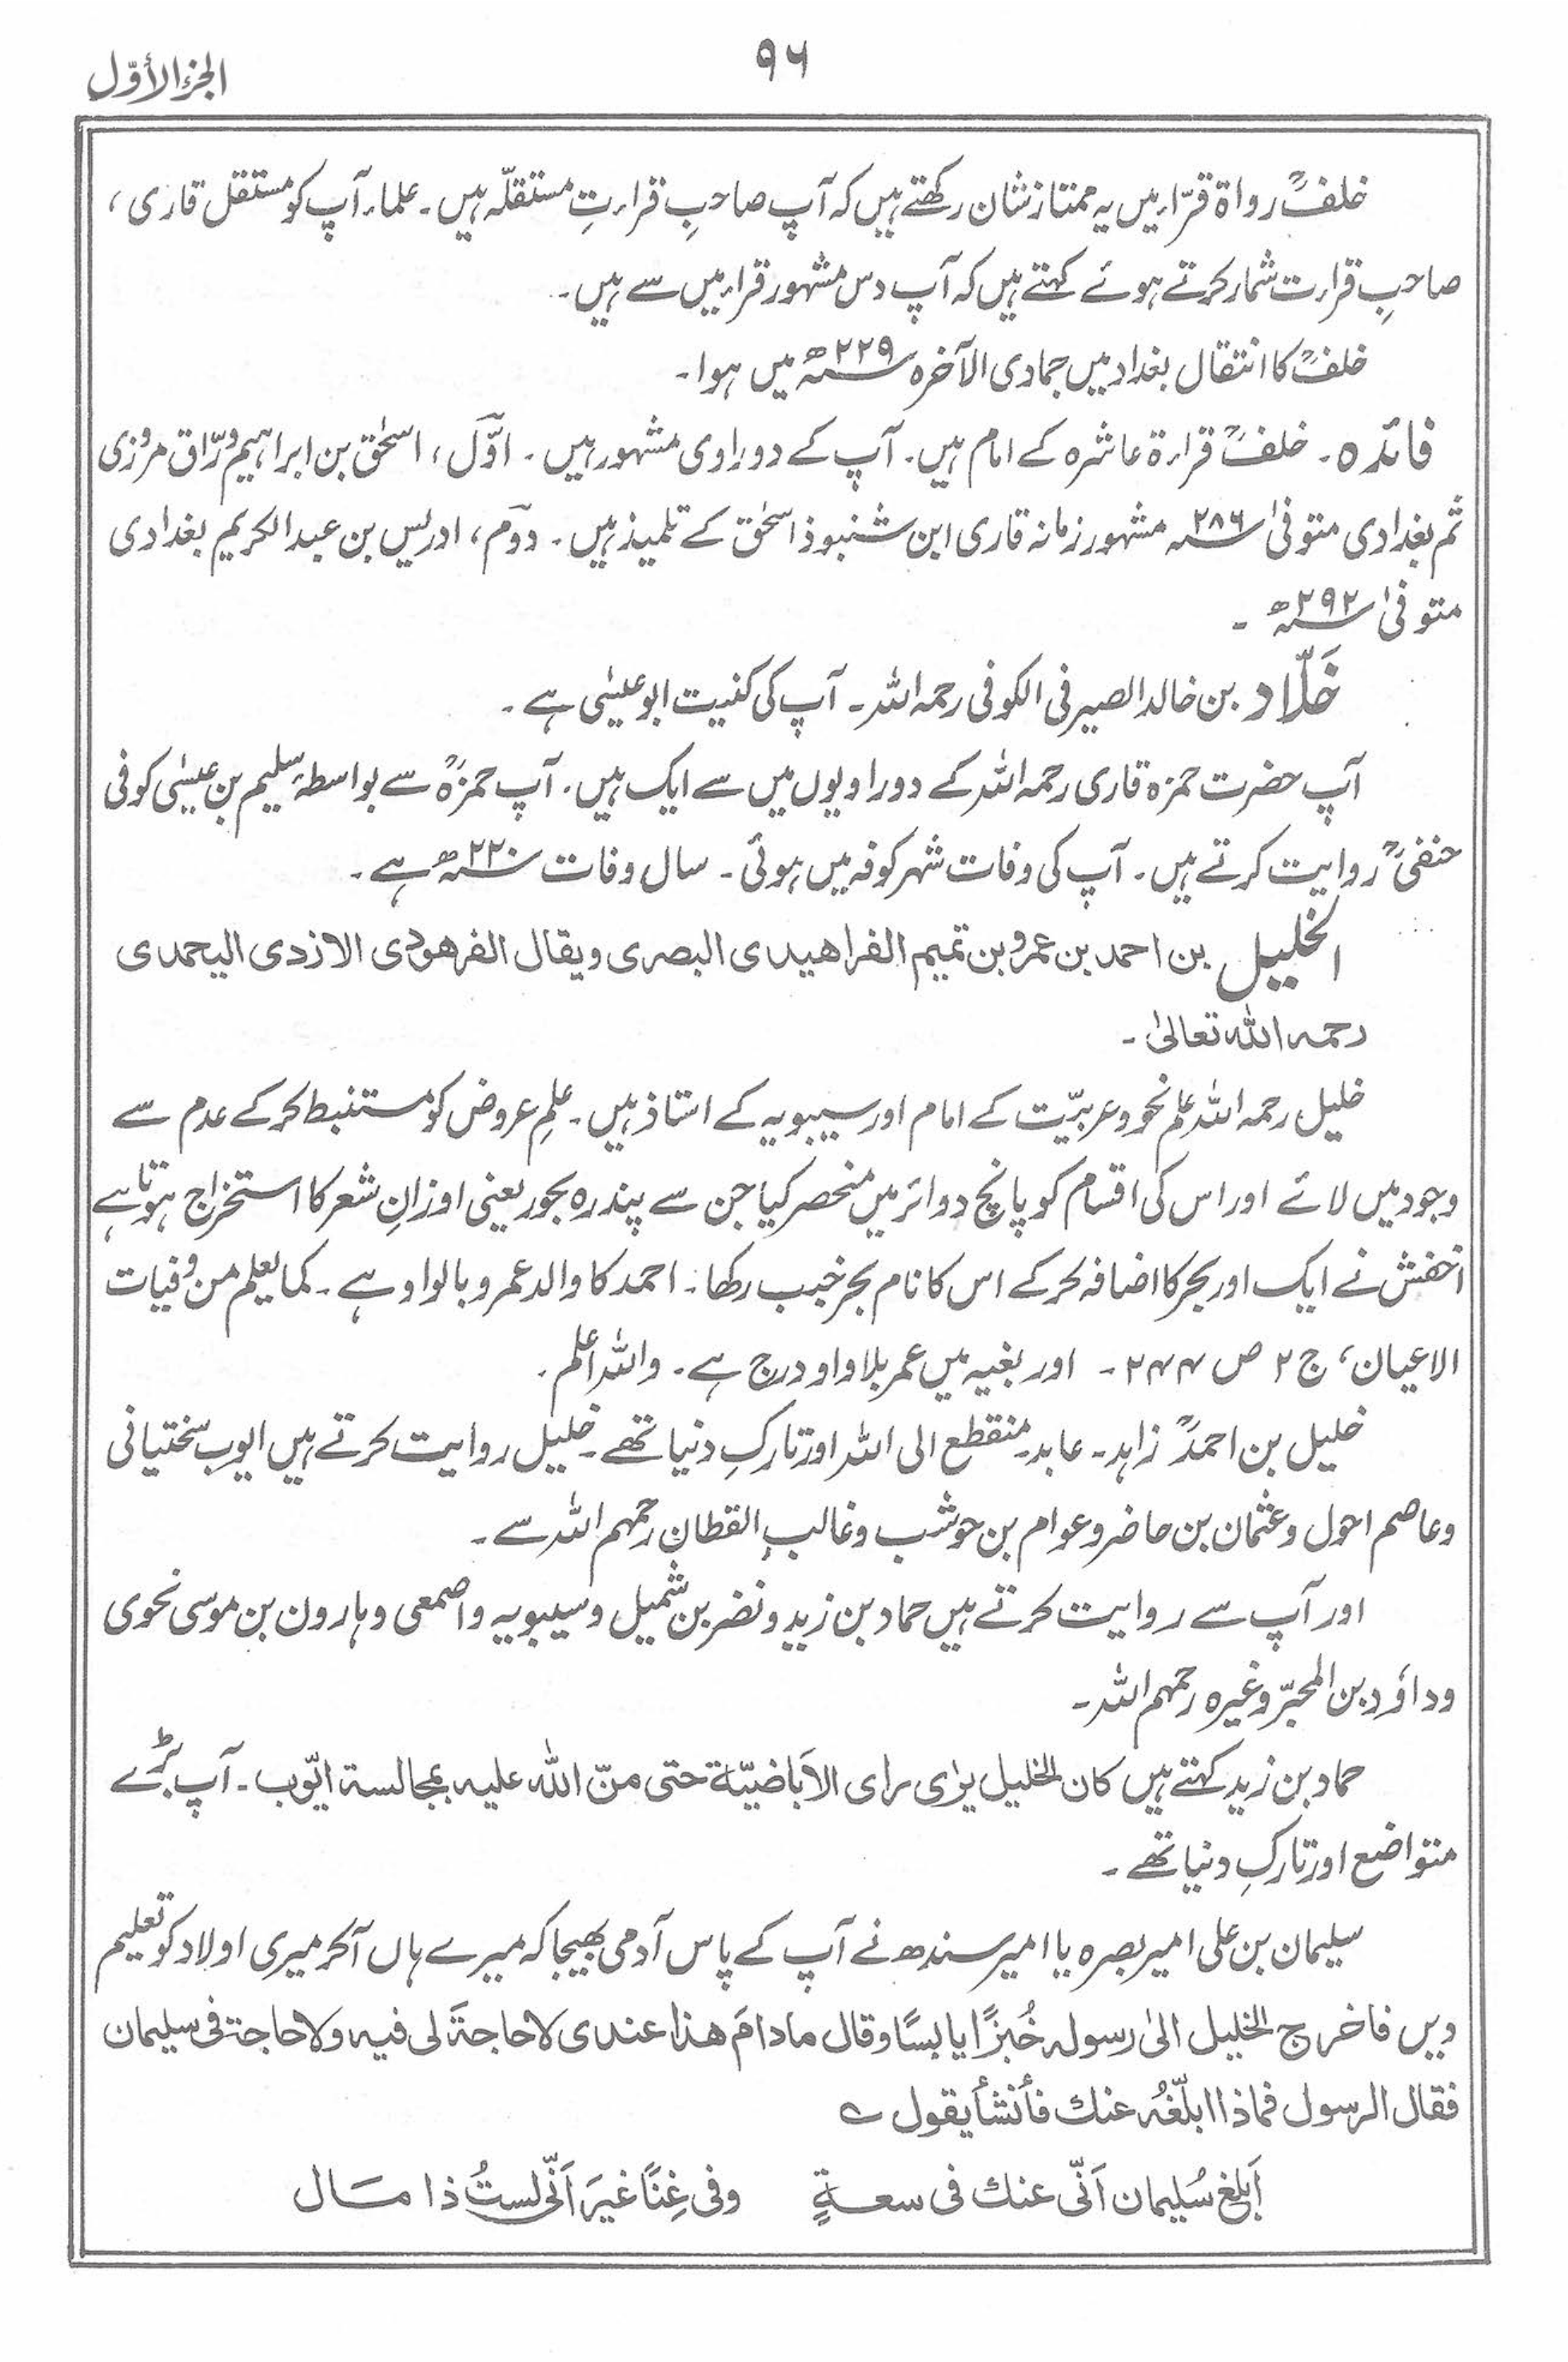 ۹۶
الجزء الأوّل
خلفؒ رواۃ قرّاء میں یہ ممتاز شان رکھتے ہیں کہ آپ صاحبِ قراءتِ مستقلّہ ہیں۔ علماء آپ کو مستقل قاری،
صاحبِ قراءت شمار کرتے ہوئے کہتے ہیں کہ آپ دس مشہور قراء میں سے ہیں۔
خلفؒ کا انتقال بغداد میں جمادی الآخرہ ۲۲۹ھ میں ہوا۔
فائدہ۔ خلفؒ قراءۃ عاشرہ کے امام ہیں۔ آپ کے دو راوی مشہور ہیں۔ اوّل، اسحٰق بن ابراہیم ورّاق مروزی
ثم بغدادی متوفیٰ ۲۸۶ مشہور زمانہ قاری ابن شنبوذ اسحٰق کے تلمیذ ہیں۔ دوم، ادریس بن عبد الکریم بغدادی
متوفیٰ ۲۹۲ھ ۔
خَلّاد بن خالد الصیرفی الکوفی رحمہ اللہ۔ آپ کی کنیت ابو عیسٰی ہے۔
آپ حضرت حمزہ قاری رحمہ اللہ کے دو راویوں میں سے ایک ہیں۔ آپ حمزہؒ سے بواسطۂ سلیم بن عیسٰی کوفی
حنفیؒ روایت کرتے ہیں۔ آپ کی وفات شہر کوفہ میں ہوئی۔ سال وفات ۲۲۰ھ ہے۔
الخلیل بن احمد بن عمرو بن تمیم الفراھیدی البصری ویقال الفرھودی الازدی الیحمدی
رحمہ اللہ تعالیٰ۔
خلیل رحمہ اللہ علم نحو و عربیّت کے امام اور سیبویہ کے استاذ ہیں۔ علمِ عروض کو مستنبط کرکے عدم سے
وجود میں لائے اور اس کی اقسام کو پانچ دوائر میں منحصر کیا جن سے پندرہ بحور یعنی اوزانِ شعر کا استخراج ہوتا ہے
اخفش نے ایک اور بحر کا اضافہ کرکے اس کا نام بحر خبب رکھا۔ احمد کا والد عمرو بالواو ہے۔ کما یعلم من وفیات
الاعیان، ج ۲ ص ۲۴۴۔ اور بغیہ میں عمر بلا واو درج ہے۔ واللہ اعلم۔
خلیل بن احمدؒ زاہد۔ عابد۔ منقطع الی اللہ اور تارکِ دنیا تھے۔ خلیل روایت کرتے ہیں ایوب سختیانی
وعاصم احول وعثمان بن حاضر وعوام بن حوشب وغالب القطان رحمہم اللہ سے۔
اور آپ سے روایت کرتے ہیں حماد بن زید ونضر بن شمیل وسیبویہ واصمعی وہارون بن موسی نحوی
وداؤد بن المحبّر وغیرہ رحمہم اللہ۔
حماد بن زید کہتے ہیں کان الخلیل یرٰی رای الاَباضیّۃ حتی منّ اللہ علیہ بمجالسۃ ایّوب۔ آپ بڑے
متواضع اور تارکِ دنیا تھے۔
سلیمان بن علی امیر بصرہ یا امیر سندھ نے آپ کے پاس آدمی بھیجا کہ میرے ہاں آکر میری اولاد کو تعلیم
دیں فاخرج الخلیل الیٰ رسولہ خُبزًا یابسًا وقال مادامَ ھذا عندی لاحاجۃَ لی فیہ ولاحاجۃ فی سلیمان
فقال الرسول فماذا ابلّغُہ عنك فأنشأ یقول ؎
اَبلِغ سُلیمان اَنّی عنك فی سعۃٍ وفی غِنًا غیرَ اَنّی لستُ ذا مال